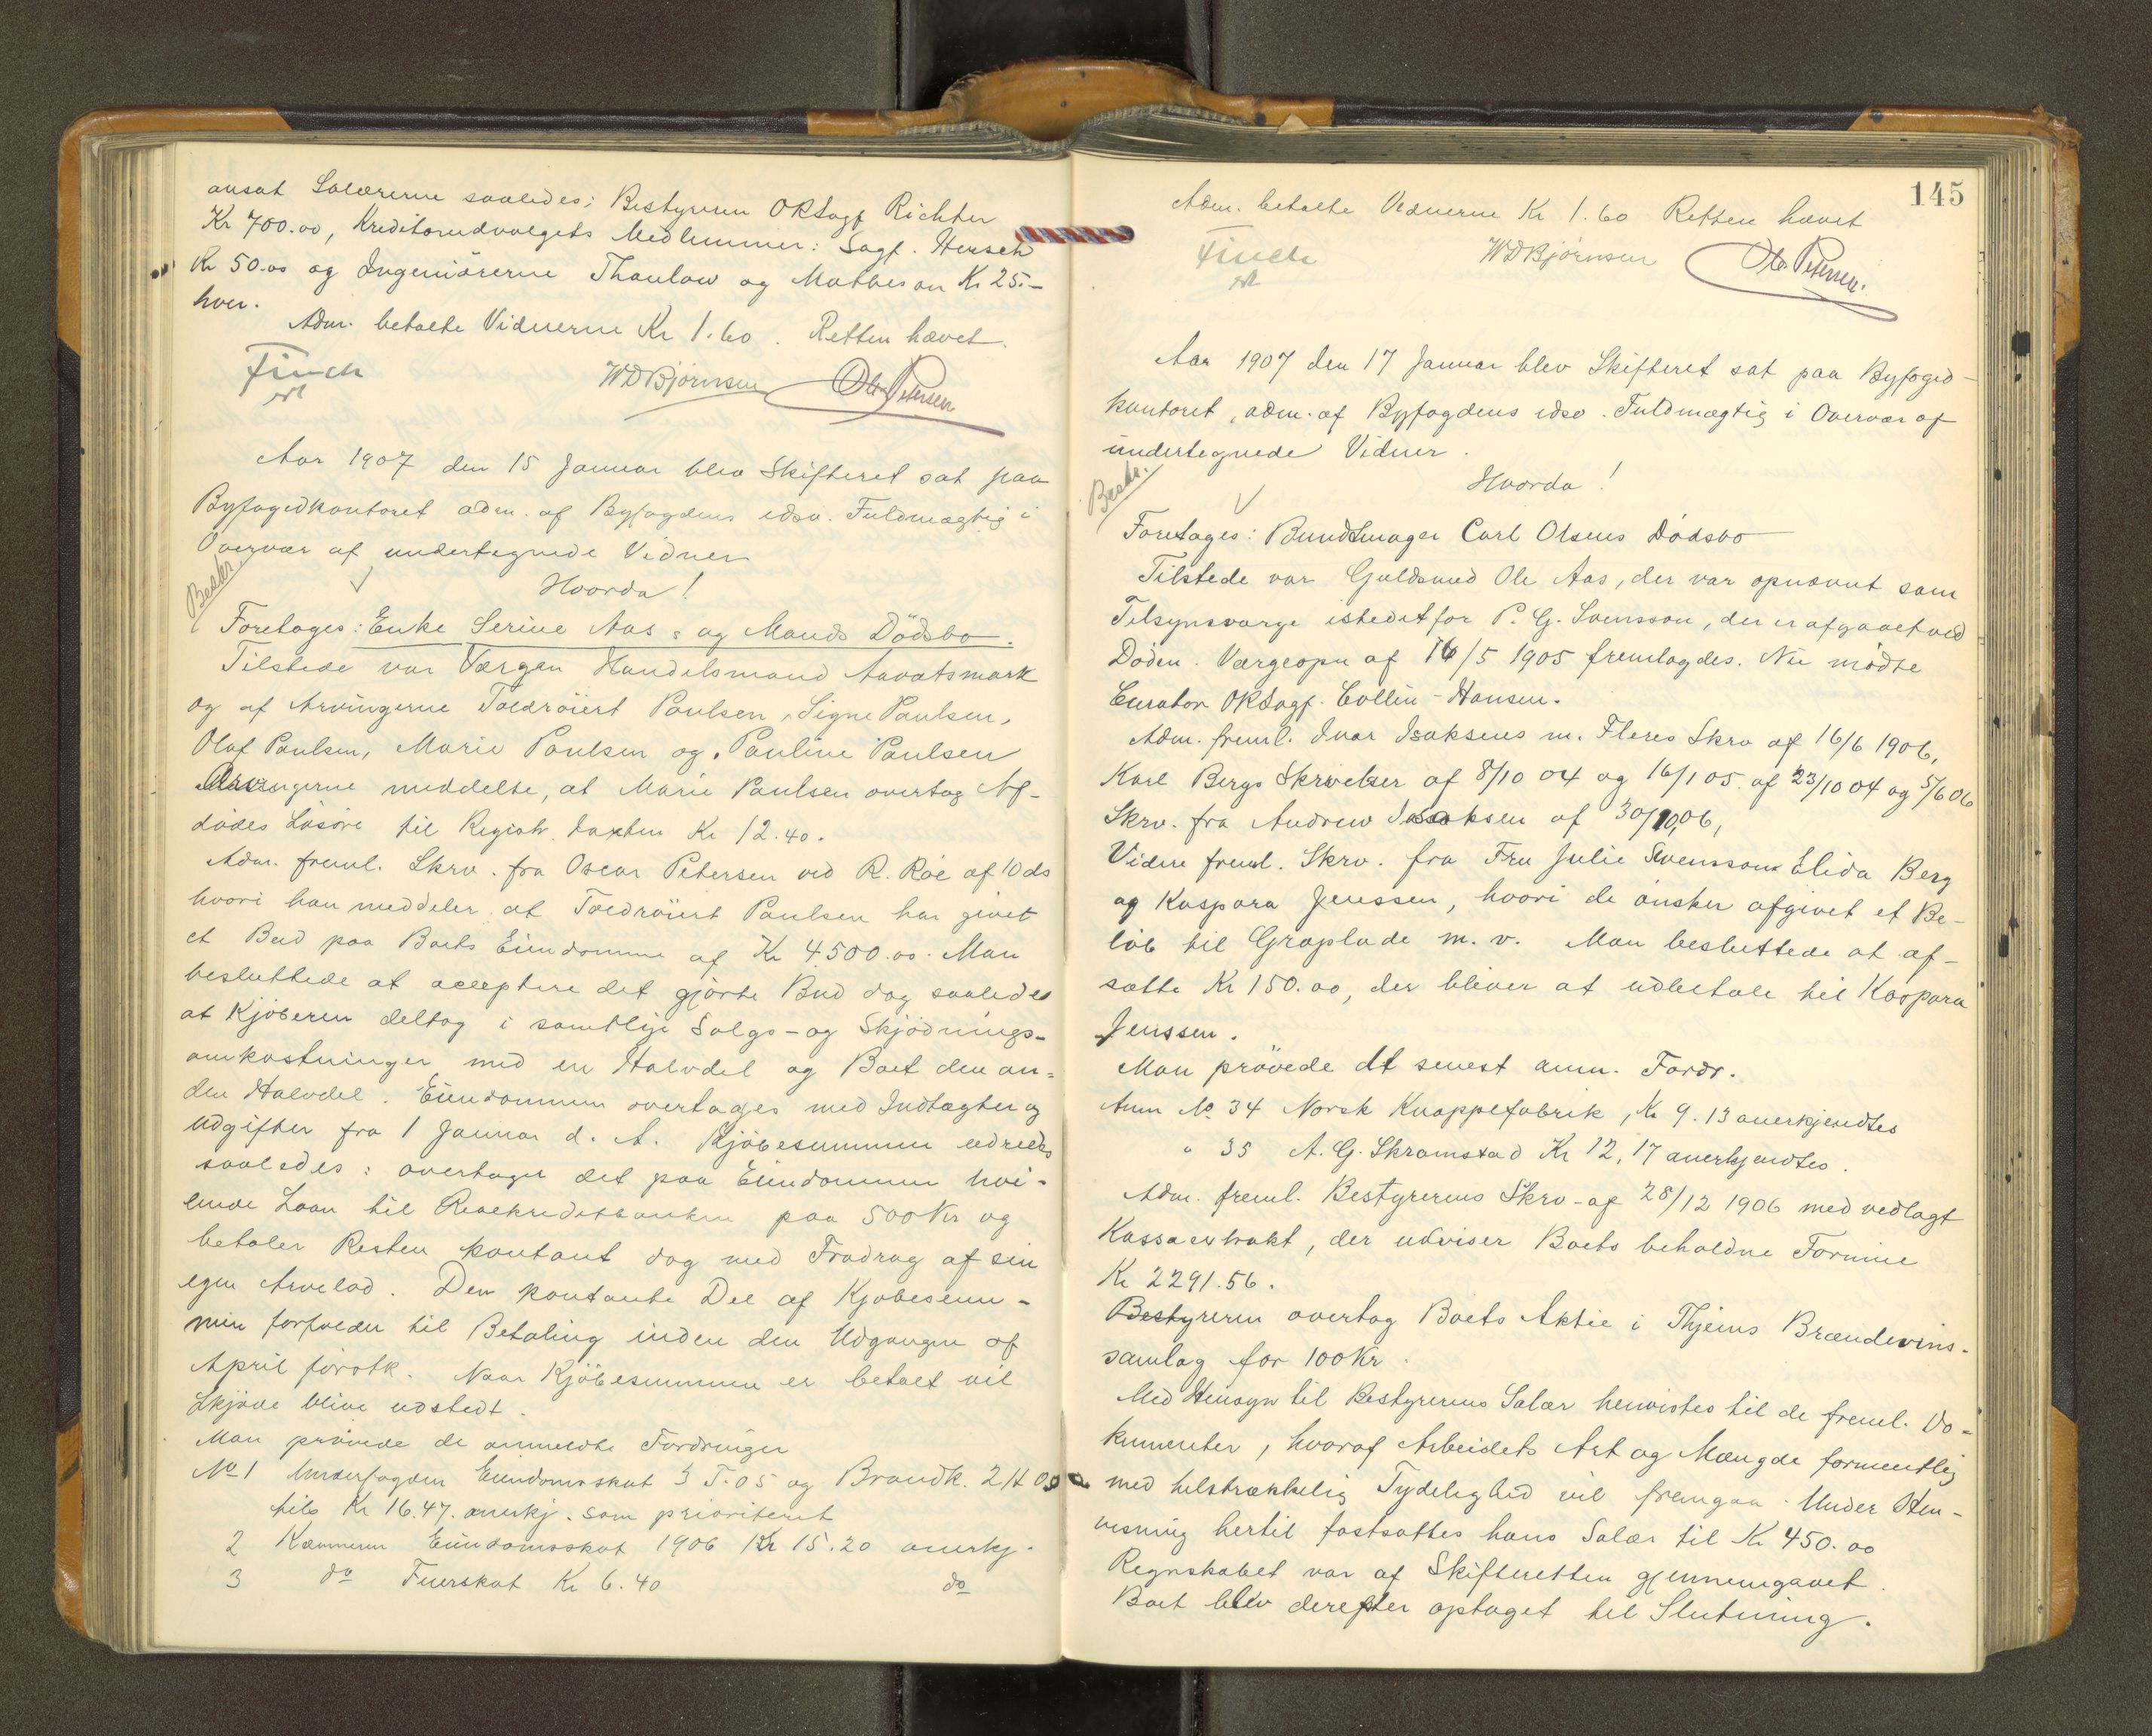 ansat Salærerne saaledes; Bestyreren ORSagf Richter
Kr 700.00, Kreditorudvalgets Medlemmer: Sagf. Hersch
Kr 50.00 og Ingeniørerne Thaulow og Mathesen Kr 25.-
hver.
Adm. betalte Vidnerne Kr 1.60. Retten hævet.
Finch
WDBjørnsen Ole Petersen
Aar 1907 den 15 Januar blev Skifteret sat paa
Byfogedkontoret adm. af Byfogdens edsv. Fuldmægtig i
Overvær af undertegnede Vidner
Hvorda!
Beskr.
Foretages: Enke Serine Aas's og Mands Dødsbo.
Tilstede var Værgen Handelsmand Aavatsmark
og af Arvingerne Toldrøiert Paulsen, Signe Paulsen,
Olaf Paulsen, Marie Paulsen og Pauline Paulsen
Arvingerne meddelte, at Marie Paulsen overtog Af-
dødes Løsøre til Registr. taxten Kr 12.40.
Adm. freml. Skrv. fra Oscar Petersen ved R. Roe af 10 ds
hvori han meddeler at Toldrøiert Paulsen har givet
et Bud paa Boets Eiendomme af Kr 4500.00. Man
besluttede at acceptere det gjorte Bud dog saaledes
at Kjøberen deltog i samtlige Salgs- og Skjødnings-
omkostninger med en Halvdel og Boet den an=
den Halvdel. Eiendommen overtages med Indtægter og
Udgifter fra 1 Januar d. A. Kjøbesummen udredes
saaledes: overtager det paa Eiendommen hvi-
lende Laan til Realkreditbanken paa 500 Kr og
betaler Resten kontant dog med Fradrag af sin
egen Arvelod. Den kontante Del af Kjøbesum-
men forfalder til Betaling inden den Udgangen af
April førstk. Naar Kjøbesummen er betalt vil
Skjøde blive udstedt.
Man prøvede de anmeldte Fordringer
No 1 Underfogden Eiendomsskat 3 T. 05 og Brandk. 2/H 05
tils Kr 16.47. anerkj. som prioriteret
2 Kæmneren Eiendomsskat 1906 Kr 15.20 anerkj.
3 do Feierskat Kr 6.40 do
145
Adm. betalte Vidnerne Kr 1.60 Retten hævet
Finch
WDBjørnsen Ole Petersen.
Aar 1907 den 17 Januar blev Skifteret sat paa Byfoged-
kontoret, adm. af Byfogdens edsv. Fuldmægtig i Overvær af
undertegnede Vidner.
Hvorda!
Beskr.
Foretages: Bundtmager Carl Olsens Dødsbo
Tilstede var Guldsmed Ole Aas, der var opnævnt som
Tilsynsværge istedetfor P. G. Svensson, der er afgaaet ved
Døden. Værgeopn af 16/5 1905 fremlagdes. Nu mødte
Curator ORSagf. Collin-Hansen.
Adm. freml. Ivar Isaksens m. Fleres Skrv af 16/6 1906,
Karl Bergs Skrivelser af 8/10 04 og 16/1 05. af 23/10 04 og 5/6 06
Skrv. fra Andrew Isaksen af 30/10 06,
Videre freml. Skrv. fra Fru Julie Svensson Elida Berg
og Kaspara Jenssen, hvori de ønsker afgivet et Be-
løb til Gravplade m. v. Man besluttede at af-
sætte Kr 150.00, der bliver at udbetale til Kaspara
Jenssen.
Man prøvede dt senest anm. Fordr.
Anm No 34 Norsk Knappefabrik, Kr 9.13 anerkjendtes
" 35 A. G. Skramstad Kr 12,17 anerkjendtes.
Adm. freml. Bestyrerens Skrv. af 28/12 1906 med vedlagt
Kassaextrakt, der udviser Boets beholdne Formue
Kr 2291.56.
Bestyreren overtog Boets Aktie i Thjems Brændevins-
samlag for 100 Kr.
Med Hensyn til Bestyrerens Salær henvistes til de freml. Do=
kumenter, hvoraf Arbeidets Art og Mængde formentlig
med tilstrækkelig Tydelighed vil fremgaa. Under Hen-
visning hertil fastsattes hans Salær til Kr 450.00
Regnskabet var af Skifteretten gjennemgaaet.
Boet blev derefter optaget til Slutning.